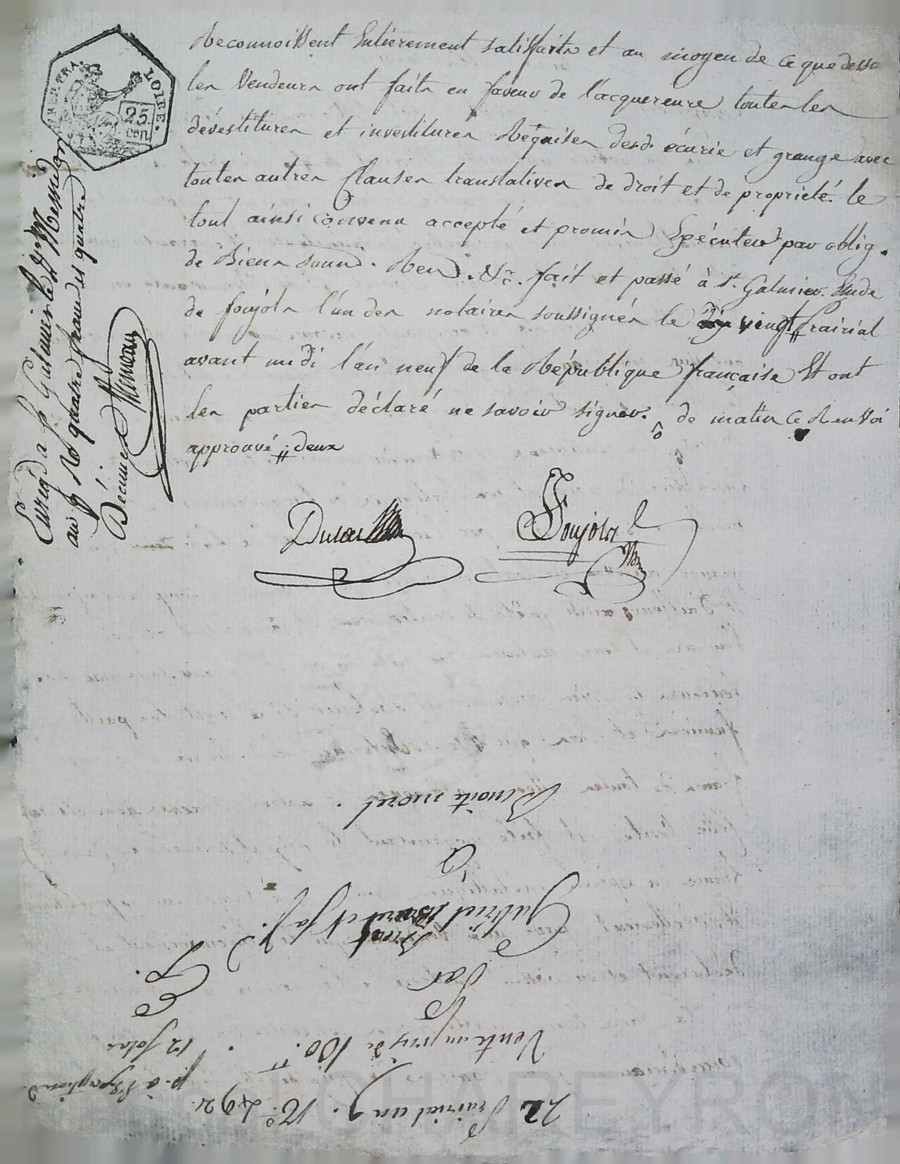 Reconnoissent Entièrement satisfaits et au moyen de ce que dessus
les Vendeurs ont faits en faveur de l'acquereure toutes les
dévestitures et investitures Réquises desd. écurie et grange avec
toutes autres Clauses translatives de droit et de propriété. le
tout ainsi convenu accepté et promis Exécuter par oblig.
de Biens soum. Ren. &c. fait et passé à st. Galmier. Etude
de foujols l'un des notaires soussignés le vingt frairial
avant midi l'an neuf de la République française Et ont
les parties déclaré ne savoir signer. de matin ce Renvoi
approuvé deux
Foujols
LOIRE.
25
cen
Enreg. a st. Galmier le Messidor
an 9 Rd quatre francs et quatre
Décimes
22 Prairial an 9. N°. 492
Vente au prix de 100.
12
Par
Gabriel
à
Benoite
CHAPEYRON